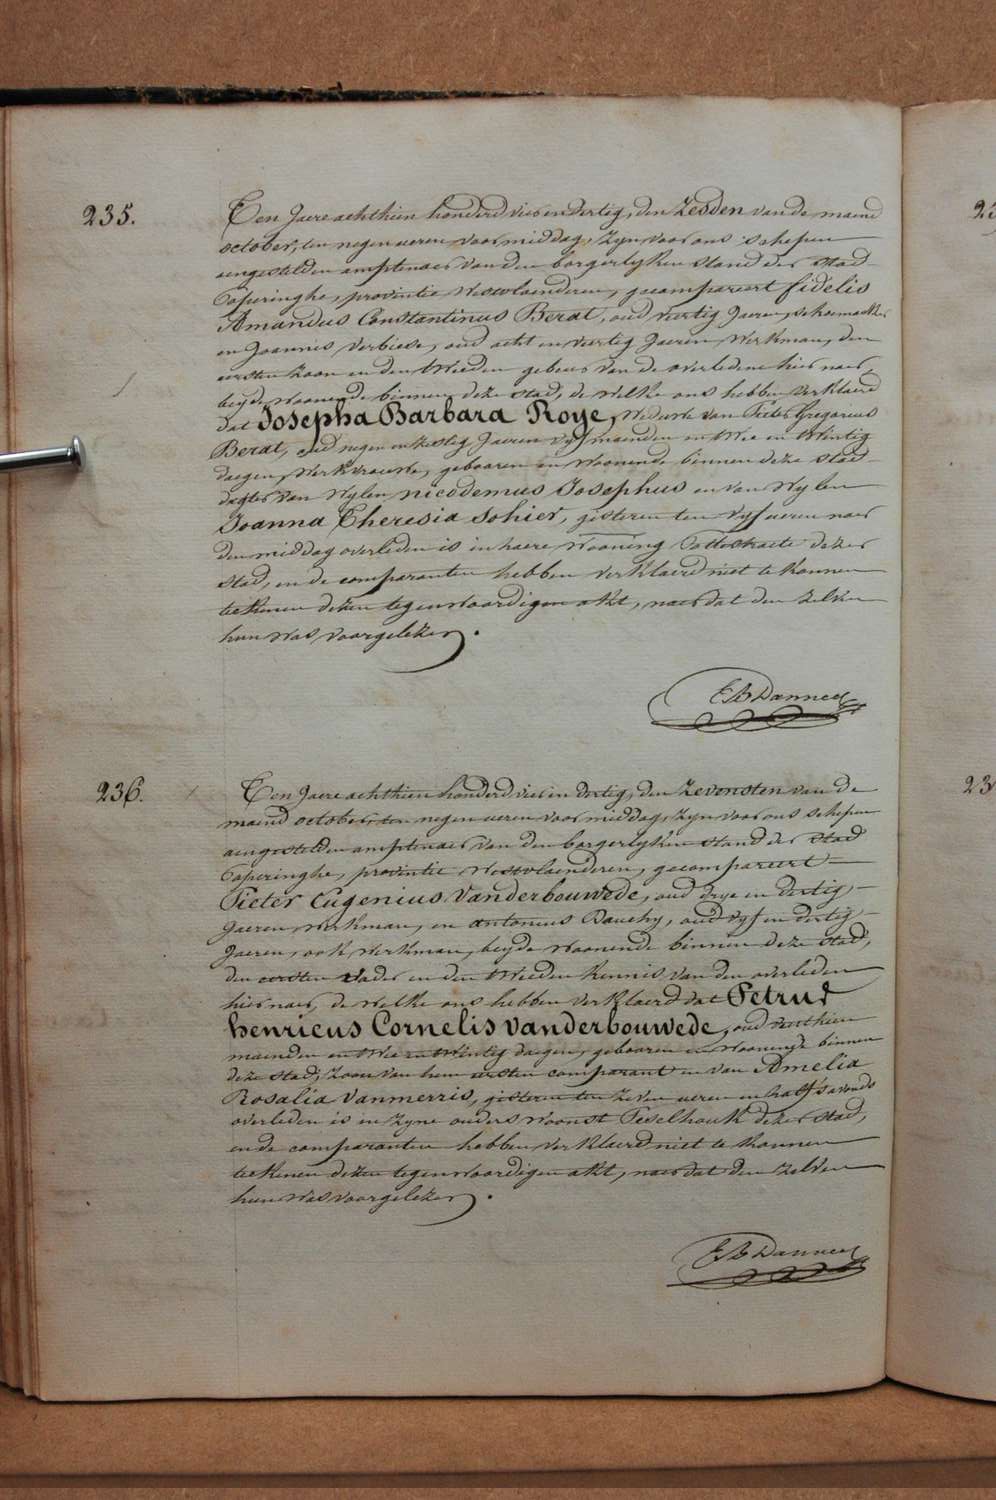 235.
Ten Jaere achthien honderd vier en dertig, den Zesden van de maend
october, ten negen ueren voor middag, zyn voor ons schepen
aengestelden amptenaer van den borgerlyken stand der stad
Poperinghe, provintie Westvlaenderen, gecompareert fidelis
Amandus Constantinus Berat, oud veertig Jaeren, schoenmaker
en Joannis Verbieze, oud acht en veertig Jaeren Werkman, den
eersten zoon en den tweeden gebeur van de overledene hier naer,
beyde woonende binnen deze stad, de welke ons hebben verklaerd
dat Josepha Barbara Roye, Weduwe van Pieter Gregorius
Berat, oud negen en zestig Jaeren vyf maenden en twee en twintig
daegen, werkvrouwe, gebooren en woonende binnen deze stad
dogter van wylen nicodemus Josephus en van wylen
Joanna Theresia Sohier, gisteren ten vyf ueren naer
den middag overleden is in haere wooning Pottestraete dezer
stad, en de comparanten hebben verklaerd niet te konnen
teekenen dezen tegenwoordigen akt, naer dat den zelven
hun was voorgelezen.
236.
Ten Jaere achthien honderd vier en dertig, den Zevensten van de
maend october, ten negen ueren voor middag, zyn voor ons schepen
aengestelden amptenaer van den borgerlyken stand der stad
Poperinghe, provintie Westvlaenderen, gecompareert
Pieter Eugenius Vanderbouwede, oud drye en dertig,
Jaeren, werkman, en antonius Bauchy, oud vyf en dertig
Jaeren, ook werkman, beyde woonende binnen deze stad,
den eersten vader en den tweeden kennis van den overleden
hier naer, de welke ons hebben verklaerd dat Petrus
henricus Cornelis vanderbouwede, oud
maenden en twee en twintig daegen, gebooren en woonende binnen
deze stad, zoon van hem eersten comparant en van Amelia
Rosalia Vanmerris, gisteren ten zeven ueren en half s'avonds
overleden is in zyne ouders woonst Peselhouk dezer stad,
en de comparanten hebben verklaerd niet te konnen
teekenen dezen tegenwoordigen akt, naer dat den zelven
hun was voorgelezen.